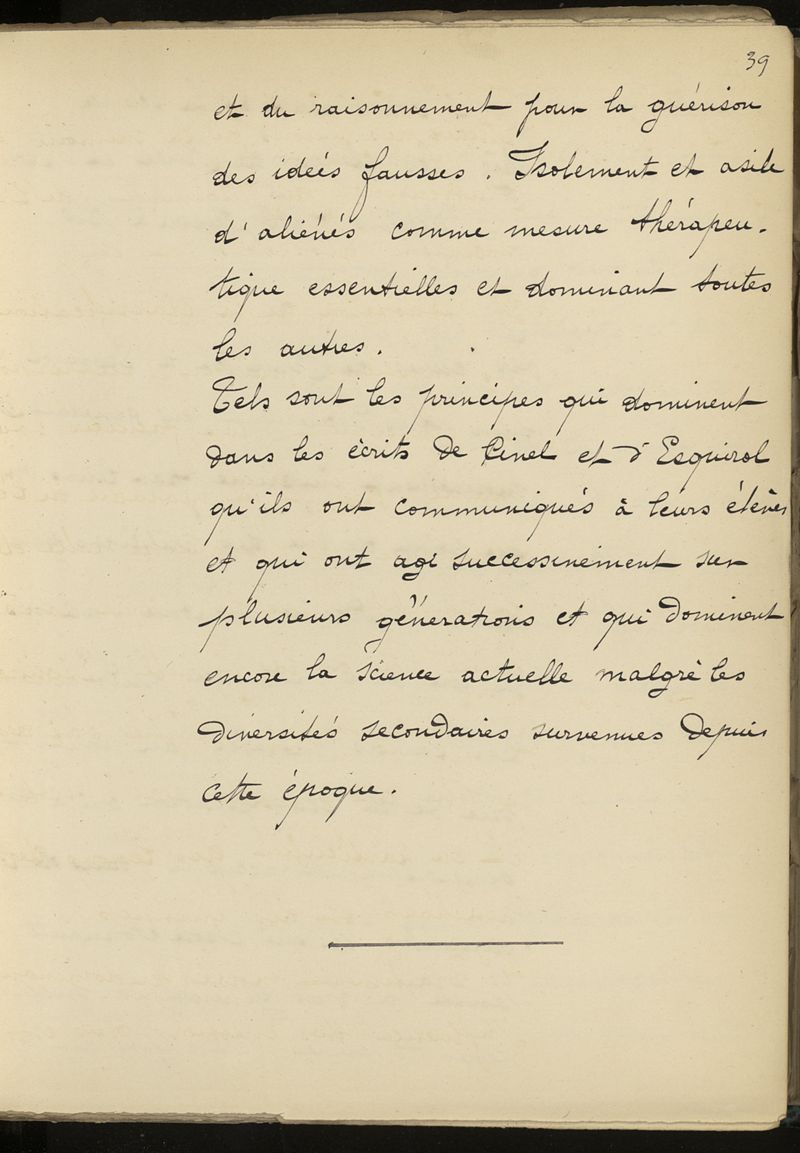 39
et du raisonnement pour la guérison
des ideés fausses. Isolement et asile
d'aliénés comme mesure thérapeu-
tique essentielles et dominant toutes
les autres.
Tels sont les principes qui dominent
dans les écrits de Pinel et d'Esquirol
qu'ils ont communiqués à leurs élèves
et qui ont agi successivement sur
plusieurs générations et qui dominent
encore la science actuelle malgré les
diversités secondaires survenues depuis
cette époque.